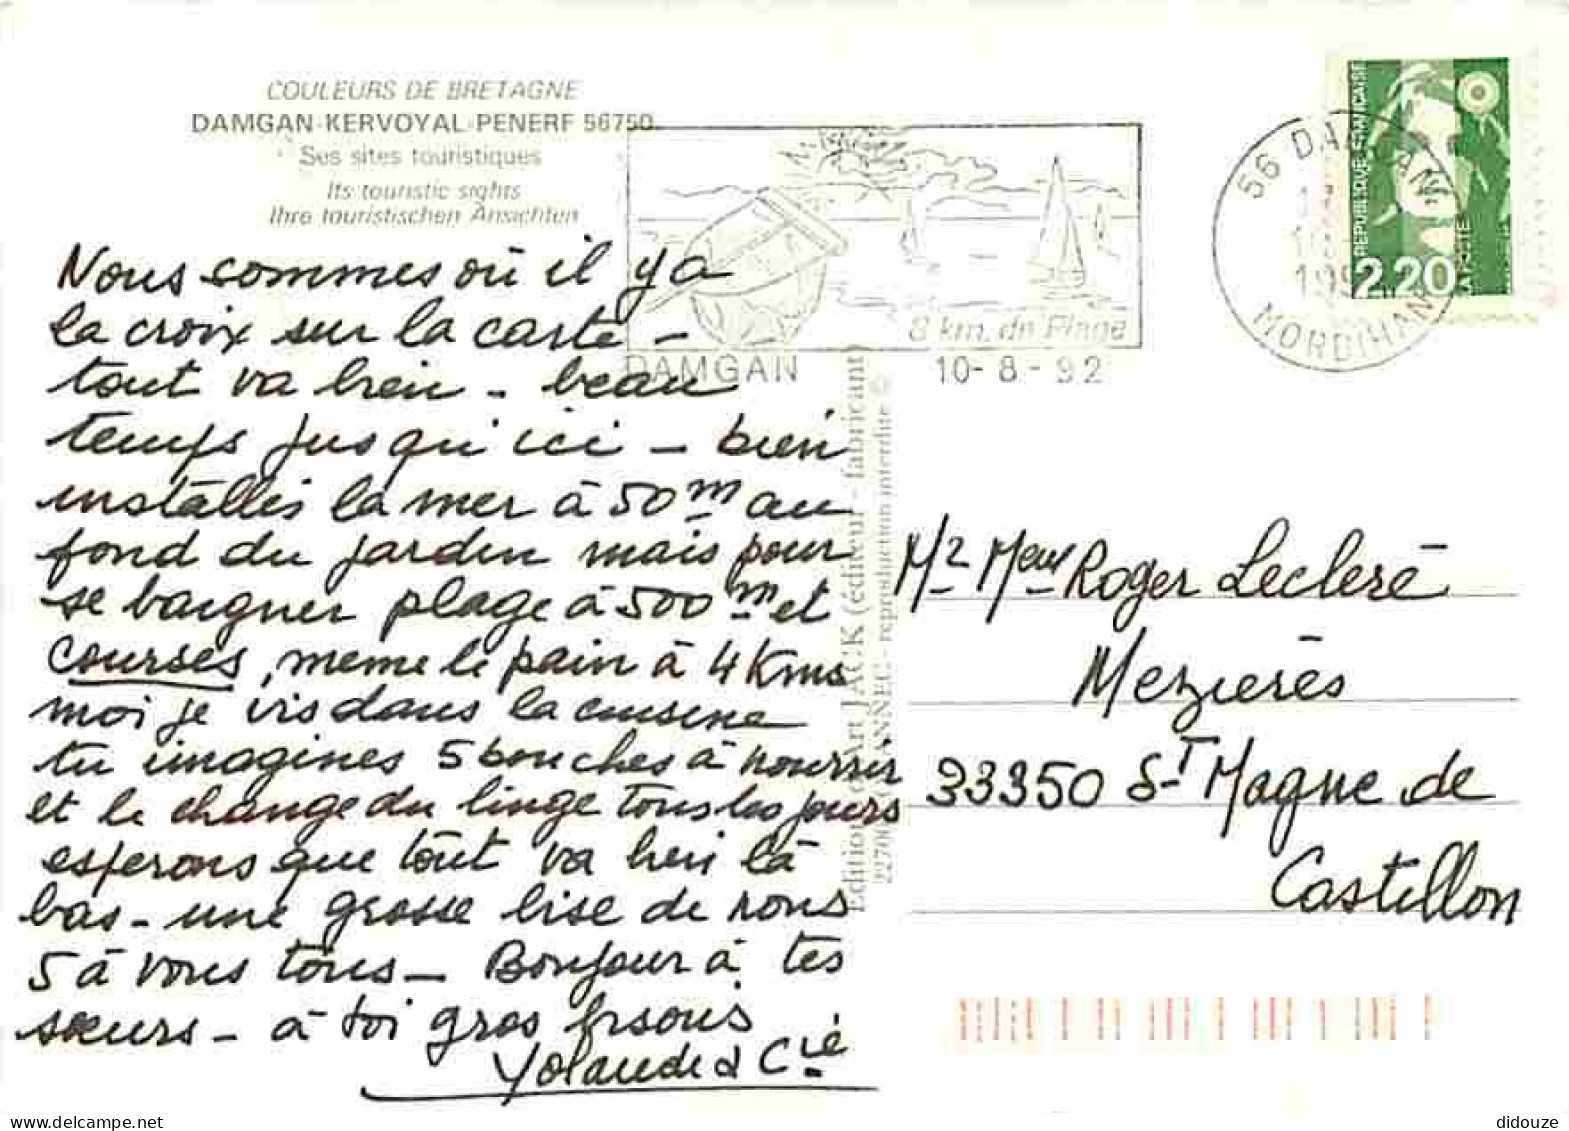 COULEURS DE BRETAGNE
DAMGAN-KERVOYAL-PENERF 56750
Ses sites touristiques
Its touristic sights
Ihre touristischen Ansichten
Nous sommes où il y a
la croix sur la carte -
tout va bien - beau
temps jusqu'ici - bien
installés la mer à 50 m au
fond du jardin mais pour
se baigner plage à 500 m et
courses, même le pain à 4 Kms
moi je vis dans la cuisine
tu imagines 5 bouches à nourrir
et le change du linge tous les jours
esperons que tout va bien là
bas - une grosse bise de nous
5 à vous tous - Bonjour à tes
sœurs - à toi gros bisous
Yolande & Cie
8 km. de Plage
DAMGAN 10-8-92
56 DAMGAN
MORBIHAN
REPUBLIQUE FRANÇAISE
2,20
LA POSTE
Editions d'Art JACK (éditeur - fabricant)
reproduction interdite ©
Mr Mme Roger Lecleré
Mezières
33350 St Magne de
Castillon
didouze